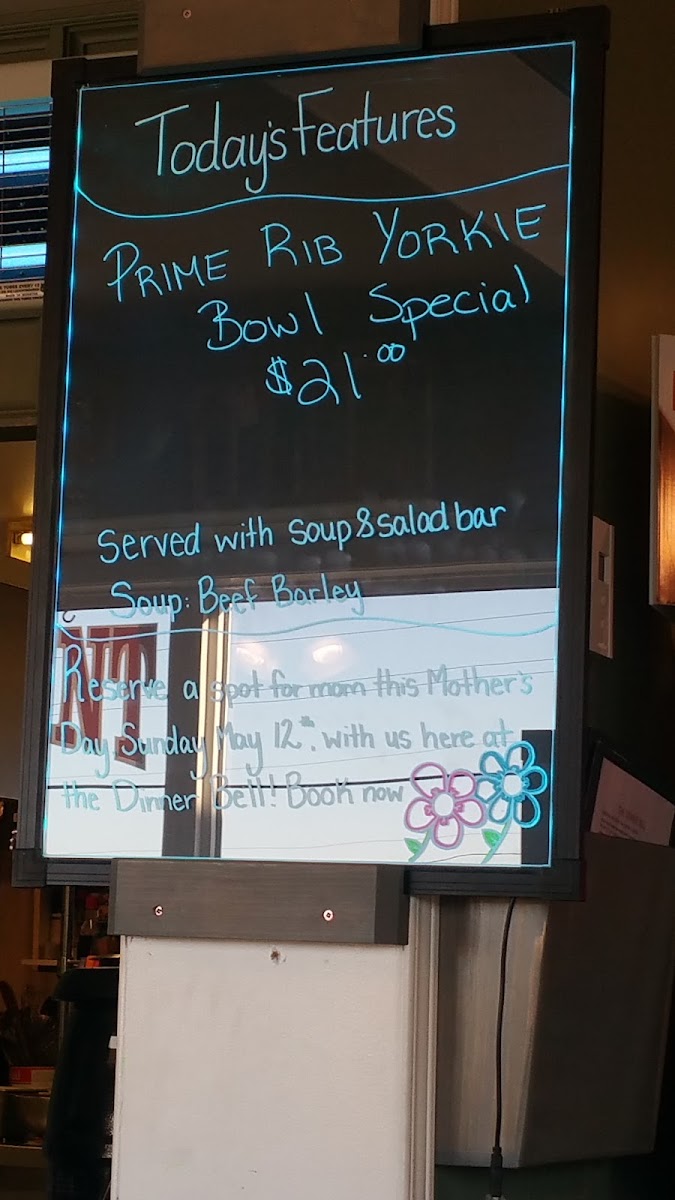 Today's Features
PRIME RIB YORKIE
Bowl Special
$21.00
Served with soup & salad bar
Soup: Beef Barley
Reserve a spot for mom this Mother's
Day Sunday May 12th. with us here at
the Dinner Bell! Book now
NT